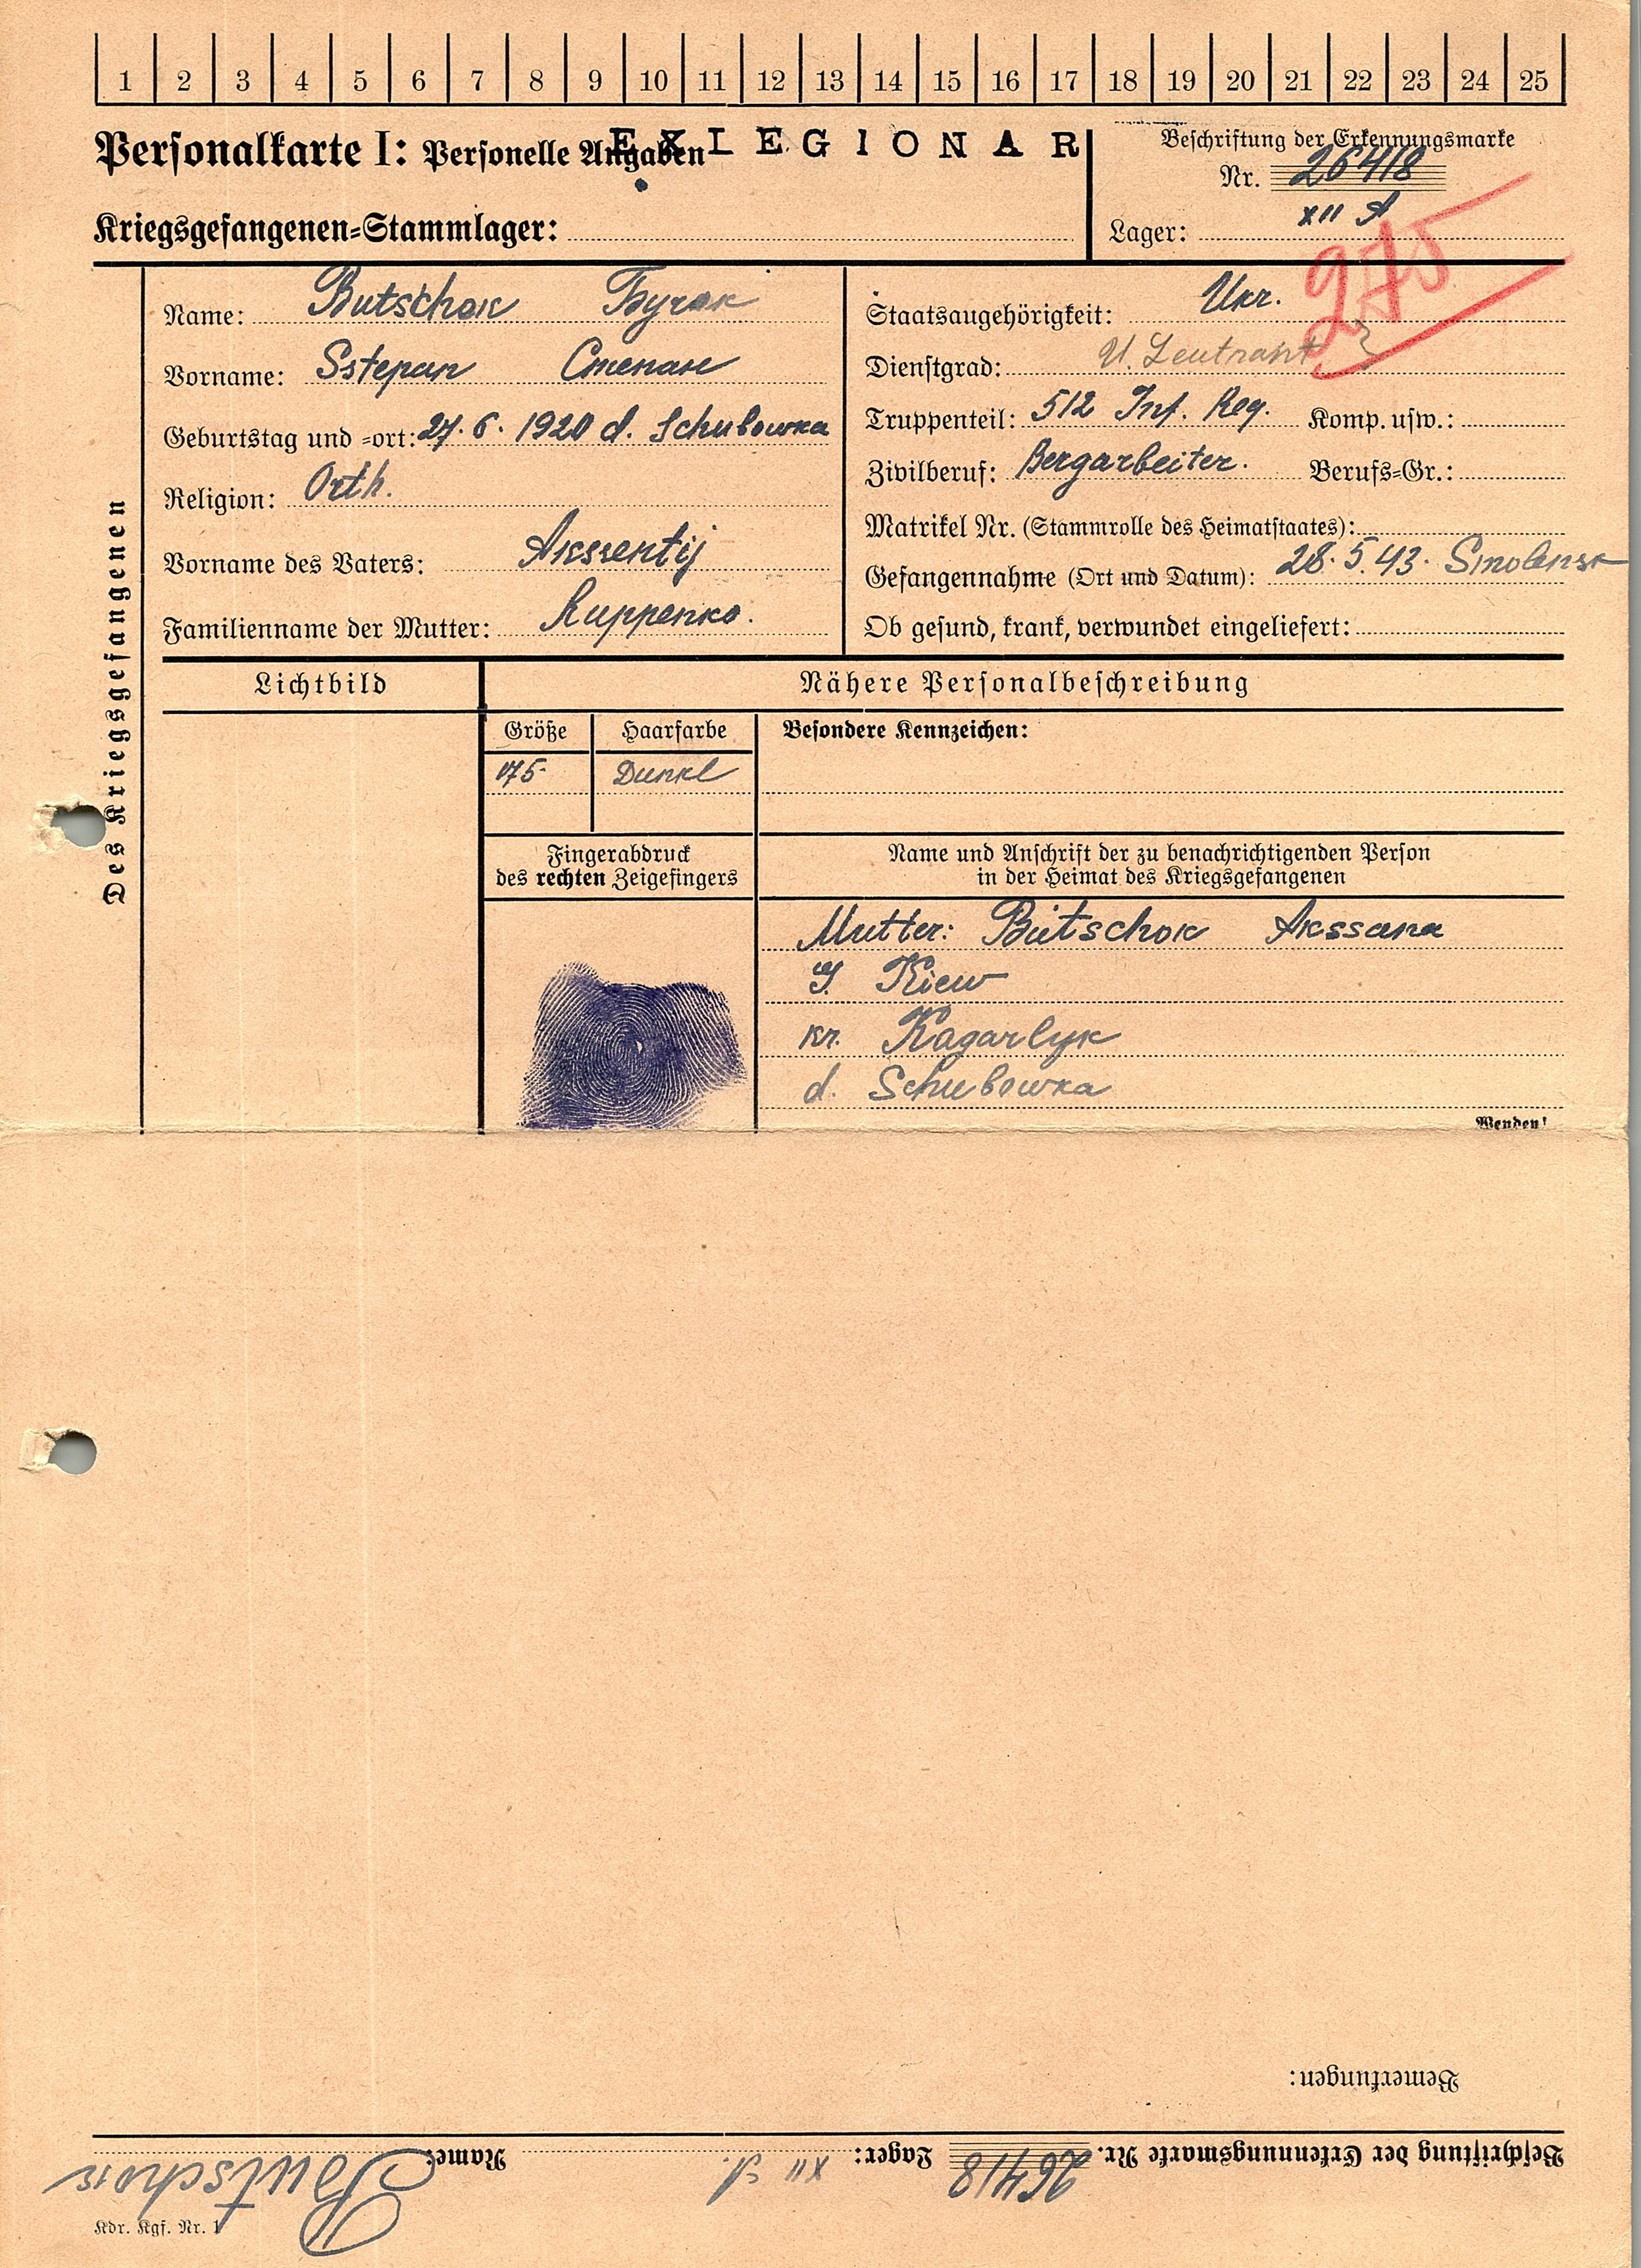 1 2 3 4 5 6 7 8 9 10 11 12 13 14 15 16 17 18 19 20 21 22 23 24 25
Personalkarte I: Personelle Angaben
EX LEGIONAR
Beschriftung der Erkennungsmarke
Nr. 26418
Kriegsgefangenen=Stammlager:
Lager: XII A
275
Des Kriegsgefangenen
Name: Butschok Бучок
Vorname: Sstepan Степан
Geburtstag und =ort: 27. 6. 1920 d. Schubowka
Religion: Orth.
Vorname des Vaters: Akssentij
Familienname der Mutter: Kuppenko.
Staatsangehörigkeit: Ukr.
Dienstgrad: U. Leutnant
Truppenteil: 512 Inf. Reg. Komp. usw.:
Zivilberuf: Bergarbeiter. Berufs=Gr.:
Matrikel Nr. (Stammrolle des Heimatstaates):
Gefangennahme (Ort und Datum): 28. 5. 43. Smolensk
Ob gesund, krank, verwundet eingeliefert:
Lichtbild
Nähere Personalbeschreibung
Größe Haarfarbe Besondere Kennzeichen:
175- Dunkl
Fingerabdruck
des rechten Zeigefingers
Name und Anschrift der zu benachrichtigenden Person
in der Heimat des Kriegsgefangenen
Mutter: Butschok Akssana
G. Kiew
kr. Kagarlyk
d. Schubowka
Wenden!
Bemerkungen:
Beschriftung der Erkennungsmarke Nr. 26418 Lager: XII A. Name: Butschok
Kdr. Kgf. Nr. 1